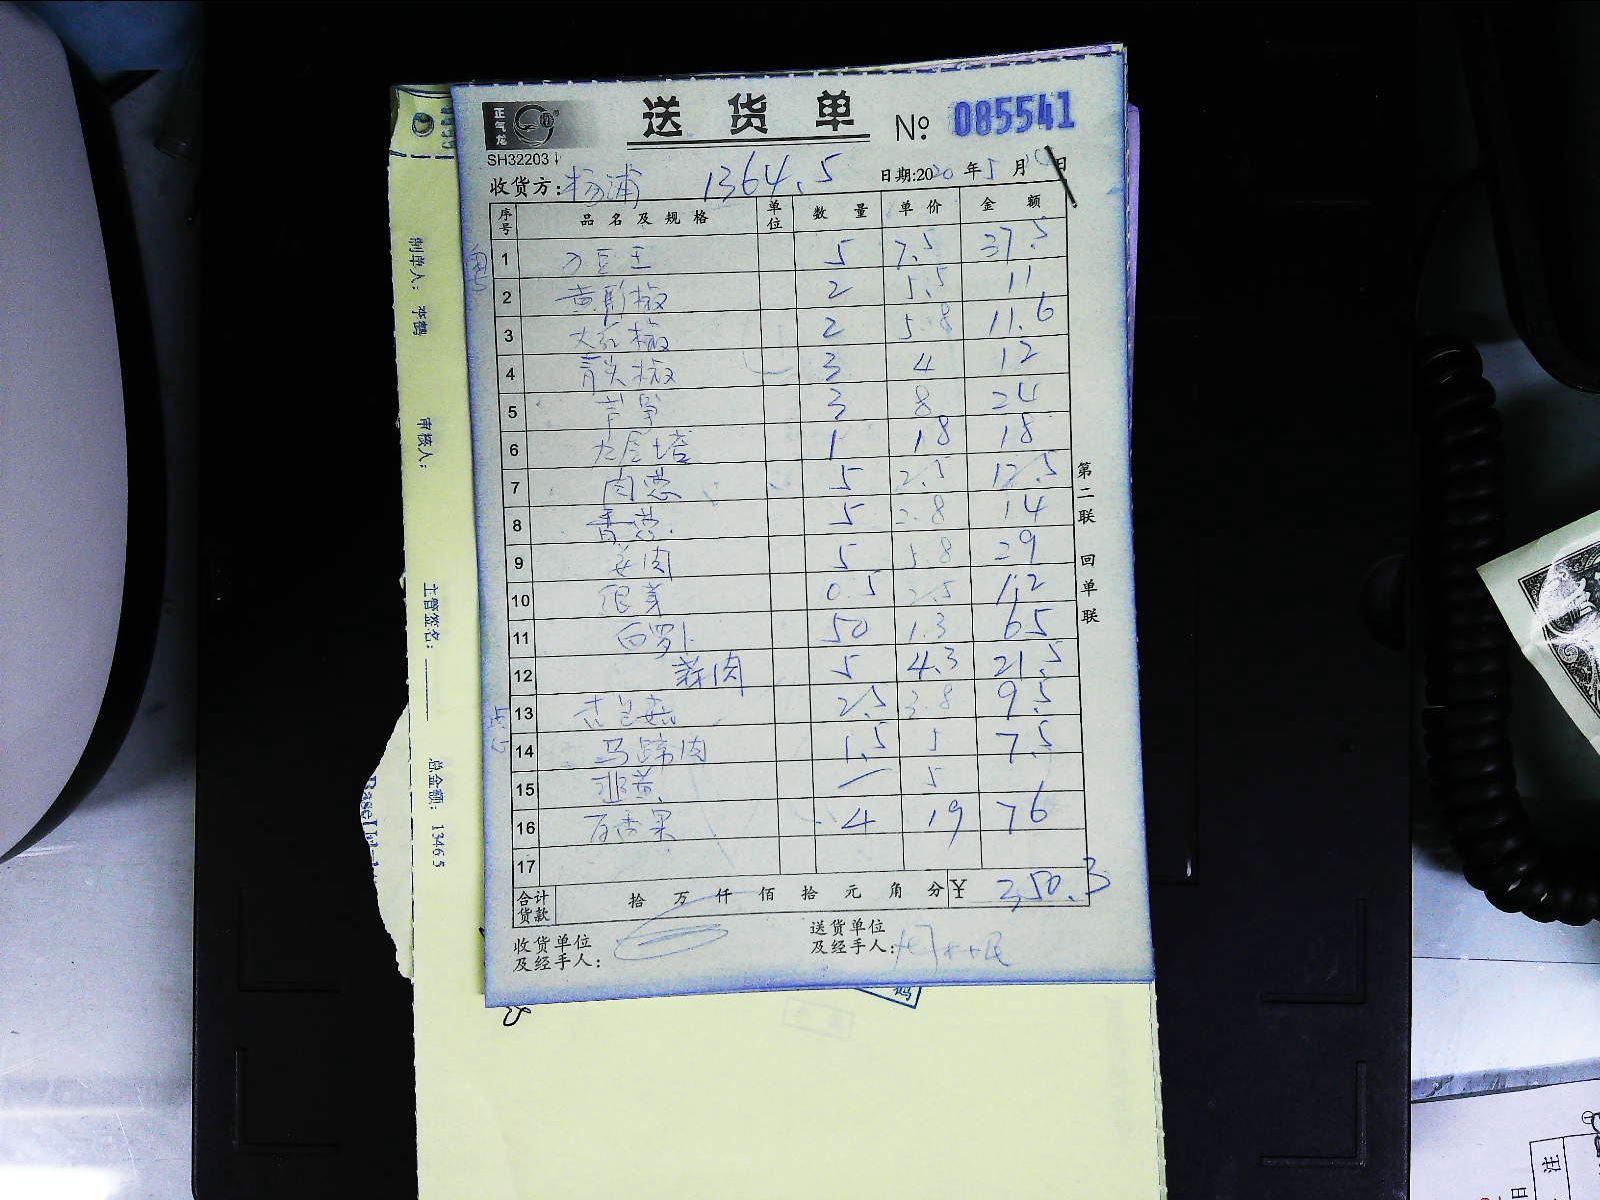 正气龙
送货单 № 085541
SH32203
收货方: 杨浦 1364.5 日期:2020年5月 日
序号 品名及规格 单位 数量 单价 金额
1 刀豆王 5 7.5 37.5
2 黄彩椒 2 5.5 11
3 大红椒 2 5.8 11.6
4 青尖椒 3 4 12
5 芦笋 3 8 24
6 九层塔 1 18 18
7 肉葱 5 2.5 12.5
8 香葱 5 2.8 14
9 姜肉 5 5.8 29
10 银芽 0.5 2.5 1.2
11 白萝卜 50 1.3 65
12 蒜肉 5 4.3 21.5
13 杏包菇 2.5 3.8 9.5
14 马蹄肉 1.5 5 7.5
15 韭黄 一 5
16 百香果 4 19 76
17
合计货款 拾万仟佰拾元角分 ¥ 350.3
收货单位
及经手人:
送货单位
及经手人:
第二联 回单联
点心
制单人: 李鹤
审核人:
主管签名:
总金额: 13465
注
日